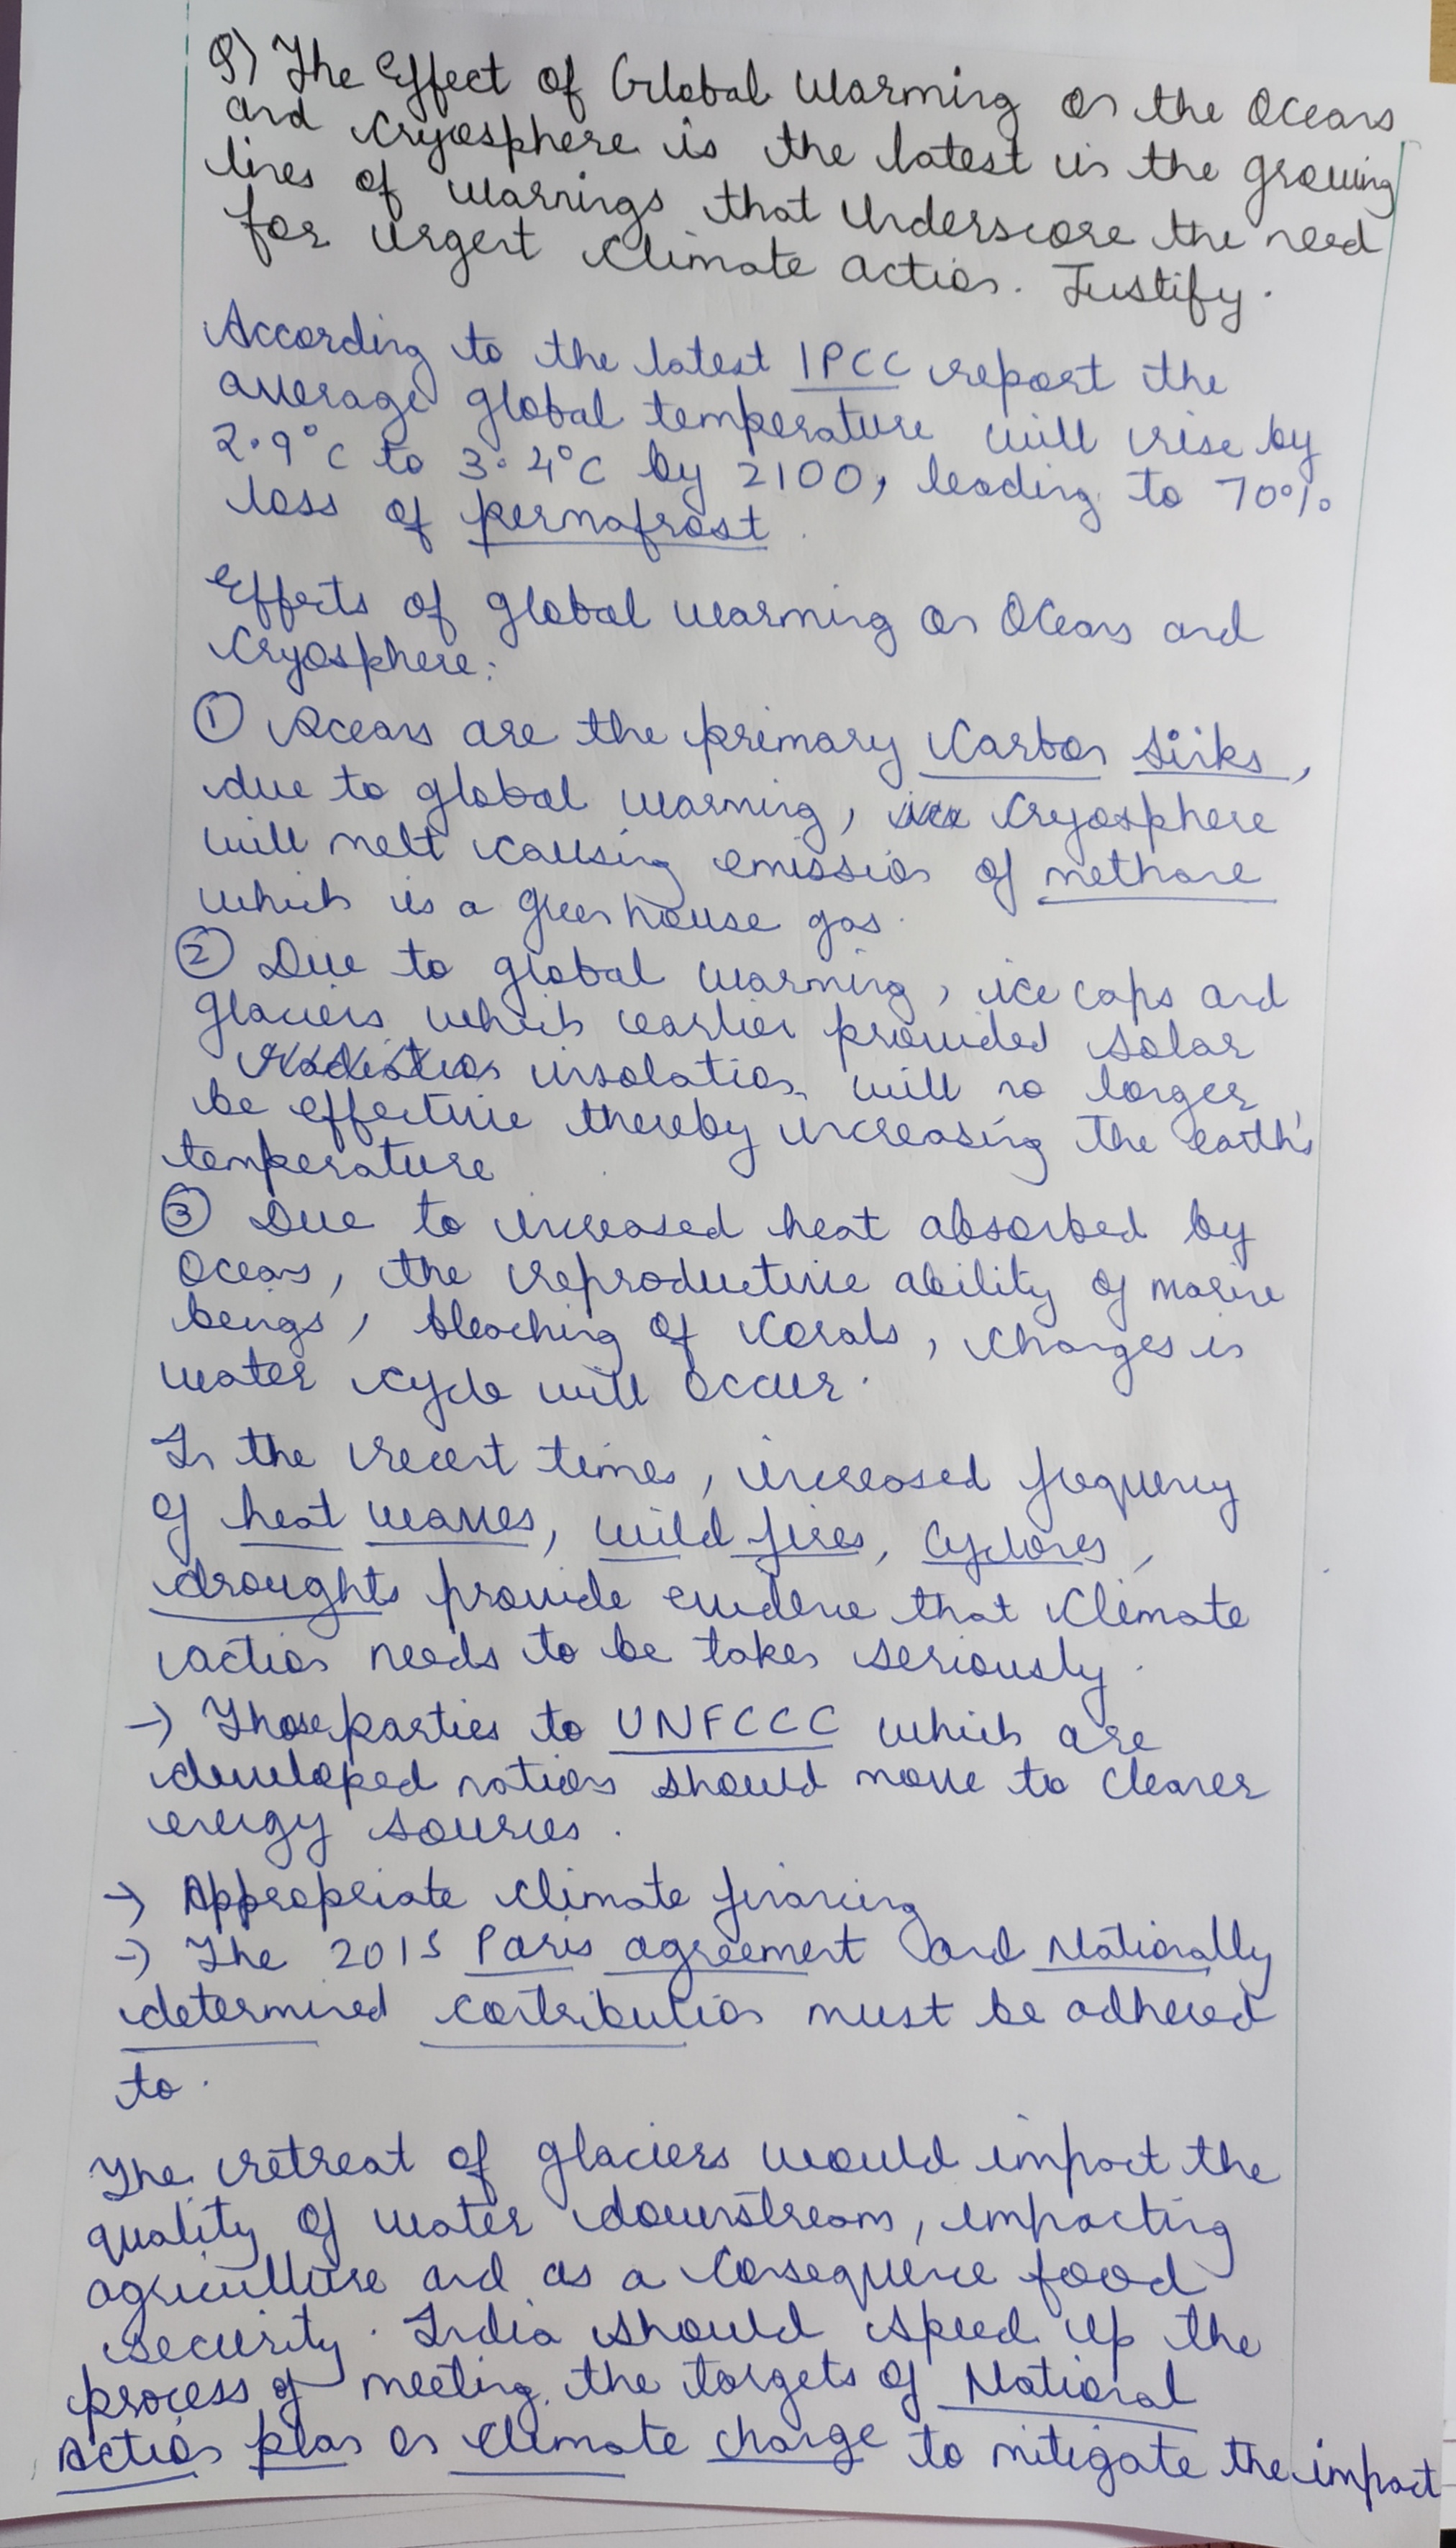 Q) The Effect of Global Warming on the Oceans
and Cryosphere is the latest in the growing
lines of warnings that underscore the need
for urgent climate action. Justify.
According to the latest IPCC report the
average global temperature will rise by
2.9°C to 3.4°C by 2100, leading to 70%
loss of permafrost.
Effects of global warming on Oceans and
Cryosphere:
① Oceans are the primary carbon sinks,
due to global warming, cryosphere
will melt causing emission of methane
which is a green house gas.
② Due to global warming, ice caps and
glaciers which earlier provided solar
insolation will no longer
be effective thereby increasing the earth's
temperature
③ Due to increased heat absorbed by
Oceans, the reproductive ability of marine
beings, bleaching of corals, changes in
water cycle will occur.
In the recent times, increased frequency
of heat waves, wild fires, cyclones,
droughts provide evidence that climate
action needs to be taken seriously.
→ Those parties to UNFCCC which are
developed nations should move to cleaner
energy sources.
→ Appropriate climate financing
→ The 2015 Paris agreement and Nationally
determined contribution must be adhered
to.
The retreat of glaciers would impact the
quality of water downstream, impacting
agriculture and as a consequence food
security. India should speed up the
process of meeting the targets of National
Action plan on climate change to mitigate the impact